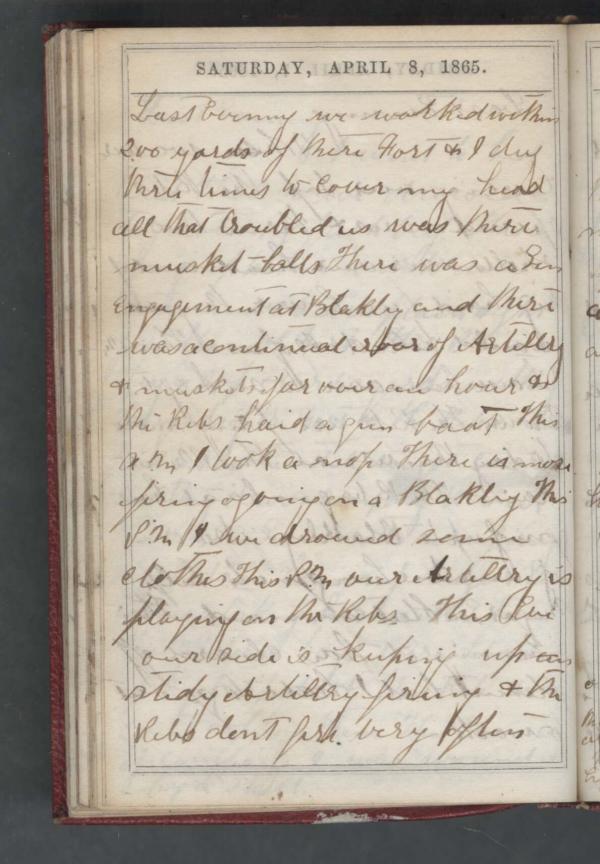 SATURDAY, APRIL 8, 1865.
Last Evening we worked within
200 yards of there Fort & I dug
three times to Cover my head
all that troubled us was there
musket balls There was a Gen
Engagement at Blakly and there
was a continual roar of Artillry
& muskets for over an hour &
the Rebs haid a gun boat This
a m I took a nap There is more
firing a going on a Blakley This
P.M & we drawed some
clothes This P.M our Artillry is
playing on the Rebs. This Eve
our side is keeping up an
stidy Artillry firing & the
Rebs dont fire. very often